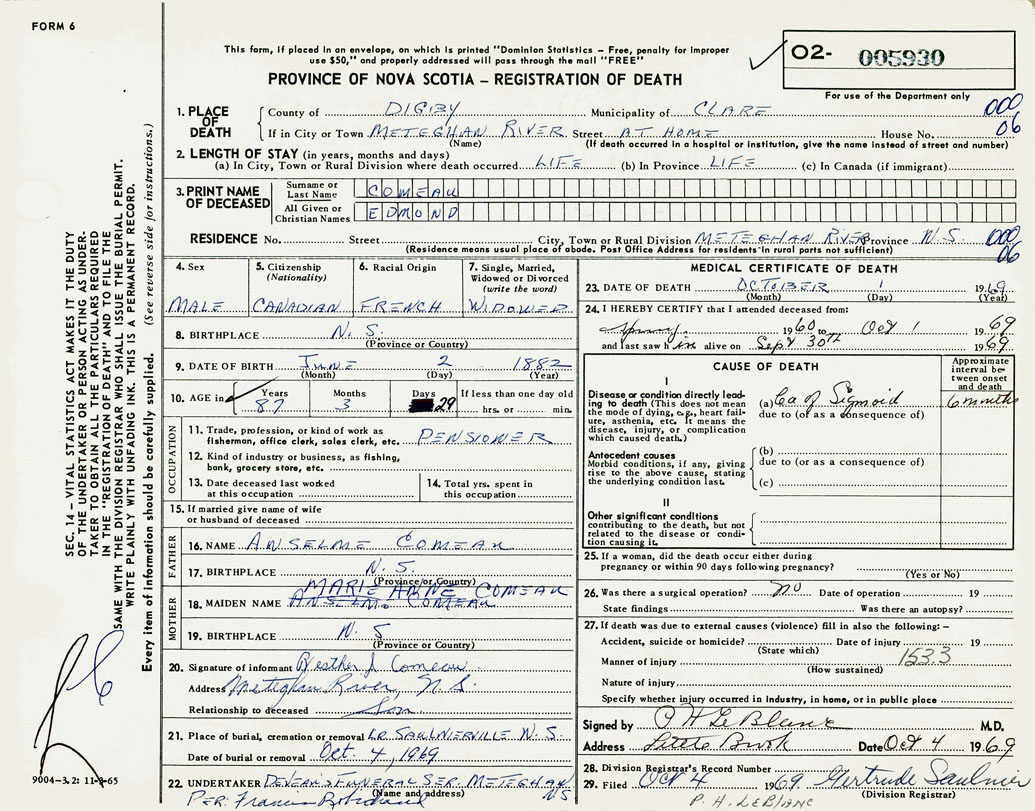 FORM 6
This form, if placed in an envelope, on which is printed "Dominion Statistics – Free, penalty for improper
use $50," and properly addressed will pass through the mail "FREE"
O2- 005930
For use of the Department only
PROVINCE OF NOVA SCOTIA – REGISTRATION OF DEATH
1. PLACE OF DEATH County of DIGBY Municipality of CLARE 000
If in City or Town METEGHAN RIVER Street AT HOME House No. 06
(Name) (If death occurred in a hospital or institution, give the name instead of street and number)
2. LENGTH OF STAY (in years, months and days)
(a) In City, Town or Rural Division where death occurred LIFE (b) In Province LIFE (c) In Canada (if immigrant)
3. PRINT NAME OF DECEASED
Surname or Last Name COMEAU
All Given or Christian Names EDMOND
RESIDENCE No. Street City, Town or Rural Division METEGHAN RIVER Province N.S. 000
(Residence means usual place of abode. Post Office Address for residents in rural parts not sufficient) 06
4. Sex MALE
5. Citizenship (Nationality) CANADIAN
6. Racial Origin FRENCH
7. Single, Married, Widowed or Divorced (write the word) WIDOWED
8. BIRTHPLACE N.S.
(Province or Country)
9. DATE OF BIRTH June 2 1882
(Month) (Day) (Year)
10. AGE in Years Months Days If less than one day old
87 3 29 hrs. or min.
OCCUPATION
11. Trade, profession, or kind of work as
fisherman, office clerk, sales clerk, etc. PENSIONER
12. Kind of industry or business, as fishing,
bank, grocery store, etc.
13. Date deceased last worked
at this occupation
14. Total yrs. spent in
this occupation
15. If married give name of wife
or husband of deceased
FATHER
16. NAME ANSELME COMEAU
17. BIRTHPLACE N.S.
(Province or Country)
MOTHER
MARIE ANNE COMEAU
18. MAIDEN NAME ANSELM COMEAU
19. BIRTHPLACE N.S
(Province or Country)
20. Signature of informant Comeau
Address Meteghan River, N.S.
Relationship to deceased Son
21. Place of burial, cremation or removal LR. SAULNIERVILLE N.S.
Date of burial or removal Oct. 4, 1969
22. UNDERTAKER FUNERAL SER. METEGHAN
(Name and address) NS
PER: Francis
MEDICAL CERTIFICATE OF DEATH
23. DATE OF DEATH OCTOBER 1 1969
(Month) (Day) (Year)
24. I HEREBY CERTIFY that I attended deceased from:
Spring 1960 to Oct 1 1969
and last saw him alive on Sept 30th 1969
CAUSE OF DEATH
Approximate interval between onset and death
I
Disease or condition directly leading to death (This does not mean
the mode of dying, e.g., heart failure, asthenia, etc. It means the
disease, injury, or complication
which caused death.)
(a) Ca of Sigmoid 6 months
due to (or as a consequence of)
Antecedent causes
Morbid conditions, if any, giving
rise to the above cause, stating
the underlying condition last.
(b)
due to (or as a consequence of)
(c)
II
Other significant conditions
contributing to the death, but not
related to the disease or condition causing it.
25. If a woman, did the death occur either during
pregnancy or within 90 days following pregnancy?
(Yes or No)
26. Was there a surgical operation? no Date of operation 19
State findings Was there an autopsy?
27. If death was due to external causes (violence) fill in also the following: –
Accident, suicide or homicide? Date of injury 19
(State which)
Manner of injury 153.3
(How sustained)
Nature of injury
Specify whether injury occurred in industry, in home, or in public place
Signed by P H LeBlanc M.D.
Address Little Brook Date Oct 4 1969
28. Division Registrar's Record Number
29. Filed Oct 4 1969 Gertrude Saulnier
(Division Registrar)
P. H. LEBLANC
SEC. 14 – VITAL STATISTICS ACT MAKES IT THE DUTY
OF THE UNDERTAKER OR PERSON ACTING AS UNDERTAKER TO OBTAIN ALL THE PARTICULARS REQUIRED
IN THE "REGISTRATION OF DEATH" AND TO FILE THE
SAME WITH THE DIVISION REGISTRAR WHO SHALL ISSUE THE BURIAL PERMIT.
WRITE PLAINLY WITH UNFADING INK. THIS IS A PERMANENT RECORD.
Every item of information should be carefully supplied. (See reverse side for instructions.)
9004–3.2: 11-3-65